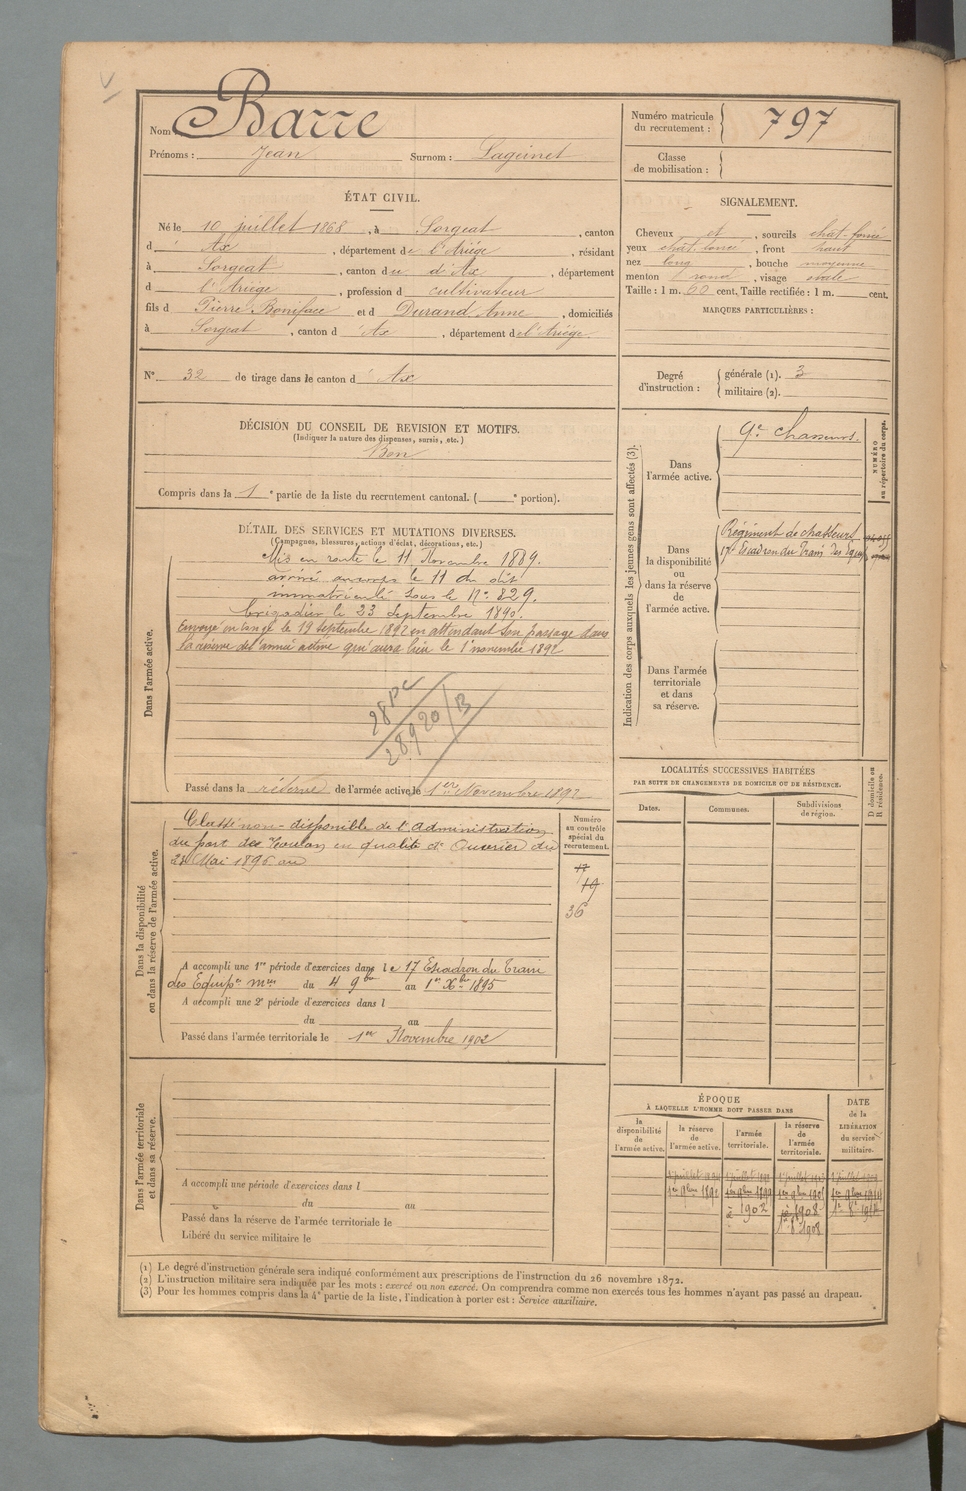 Nom Barre
Prénoms : Jean Surnom : Laguinet
Numéro matricule
du recrutement : 797
Classe
de mobilisation :
ÉTAT CIVIL.
Né le 10 juillet 1868, à Sorgeat, canton
d' Ax, département de l'Ariège, résidant
à Sorgeat, canton du d'Ax, département
d l'Ariège, profession d cultivateur
fils d Pierre Boniface et d Durand Anne, domiciliés
à Sorgeat, canton d' Ax, département de l'Ariège.
N° 32 de tirage dans le canton d' Ax
SIGNALEMENT.
Cheveux et, sourcils chat-foncé
yeux chat. foncé, front haut
nez long, bouche moyenne
menton rond, visage ovale
Taille : 1 m. 60 cent. Taille rectifiée : 1 m. cent.
MARQUES PARTICULIÈRES :
Degré
d'instruction :
générale (1). 3
militaire (2).
DÉCISION DU CONSEIL DE REVISION ET MOTIFS.
(Indiquer la nature des dispenses, sursis, etc.)
Bon
Compris dans la 1e partie de la liste du recrutement cantonal. ( e portion).
DÉTAIL DES SERVICES ET MUTATIONS DIVERSES.
(Campagnes, blessures, actions d'éclat, décorations, etc.)
Dans l'armée active.
Mis en route le 11 Novembre 1889.
arrivé au corps le 11 du dit
immatriculé sous le N° 829.
brigadier le 23 Septembre 1890.
Envoyé en congé le 19 septembre 1892 en attendant son passage dans
la réserve de l'armée active qui aura lieu le 1er novembre 1892
28 PC
28920/B
Passé dans la réserve de l'armée active le 1er Novembre 1892
Indication des corps auxquels les jeunes gens sont affectés (3).
Dans
l'armée active.
9e Chasseurs.
NUMÉRO
au répertoire du corps.
Dans
la disponibilité
ou
dans la réserve
de
l'armée active.
Régiment de chasseurs
17e Escadron du Train des Equip
Dans l'armée
territoriale
et dans
sa réserve.
Dans la disponibilité
ou dans la réserve de l'armée active.
Classé non-disponible de l'administration
du port de Toulon en qualité d'Ouvrier du
Mai 1896 au
Numéro
au contrôle
spécial du
recrutement.
17
19
36
A accompli une 1re période d'exercices dans le 17 Escadron du Train
des Equipes mres du 4 9bre au 1er Xbre 1895
A accompli une 2e période d'exercices dans l
du au
Passé dans l'armée territoriale le 1er Novembre 1902
LOCALITÉS SUCCESSIVES HABITÉES
PAR SUITE DE CHANGEMENTS DE DOMICILE OU DE RÉSIDENCE.
D domicile ou
R résidence.
Dates. Communes. Subdivisions
de région.
Dans l'armée territoriale
et dans sa réserve.
A accompli une période d'exercices dans l
du au
Passé dans la réserve de l'armée territoriale le
Libéré du service militaire le
ÉPOQUE
À LAQUELLE L'HOMME DOIT PASSER DANS
la
disponibilité
de
l'armée active.
la réserve
de
l'armée active.
l'armée
territoriale.
la réserve
de
l'armée
territoriale.
DATE
de la
LIBÉRATION
du service
militaire.
1er 9bre 1892 1er 9bre 1899
à 1902 1908
1908
(1) Le degré d'instruction générale sera indiqué conformément aux prescriptions de l'instruction du 26 novembre 1872.
(2) L'instruction militaire sera indiquée par les mots : exercé ou non exercé. On comprendra comme non exercés tous les hommes n'ayant pas passé au drapeau.
(3) Pour les hommes compris dans la 4e partie de la liste, l'indication à porter est : Service auxiliaire.